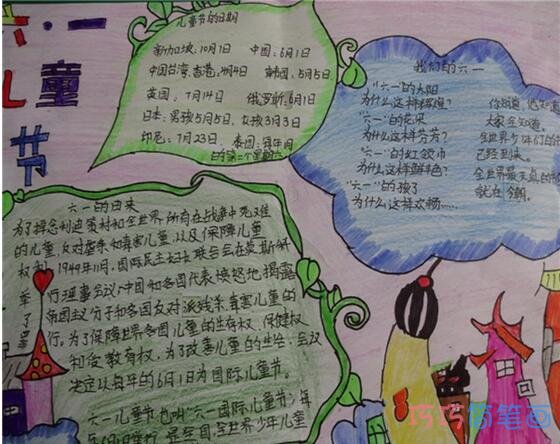 六·一
儿童
节
儿童节的日期
新加坡:10月1日 中国:6月1日
中国台湾,香港:4月4日 韩国:5月5日
英国:7月14日 俄罗斯:6月1日
日本:男孩5月5日、女孩3月3日
印尼:7月23日、泰国:每年1月
的第二个星期六
我们的六一
"六一"的太阳
为什么这样辉煌?
"六一"的花朵
为什么这样芬芳?
"六一"的红领巾
为什么这样鲜丰色?
"六一"的孩子
为什么,这样欢畅……
你知道,他知
大家全知道。
全世界少年们的
已经到来。
全世界最天真的
就在今朝。
六一的由来
为了悼念利迪策村和全世界所有在战争中死难
的儿童,反对虐杀和毒害儿童,以及保障儿童
权利,1949年11月,国际民主妇女联合会在莫斯科
举行理事会议,中国和各国代表愤怒地揭露
了
帝国主义分子和各国反对派残杀、毒害儿童的
罪行。为了保障世界各国儿童的生存权、保健权
和受教育权,为了改善儿童的生活,会议
决定以每年的6月1日为国际儿童节。
六一儿童节也叫"六一国际儿童节",每
年6月1日举行,是全国、全世界少年儿童
巧巧简笔画